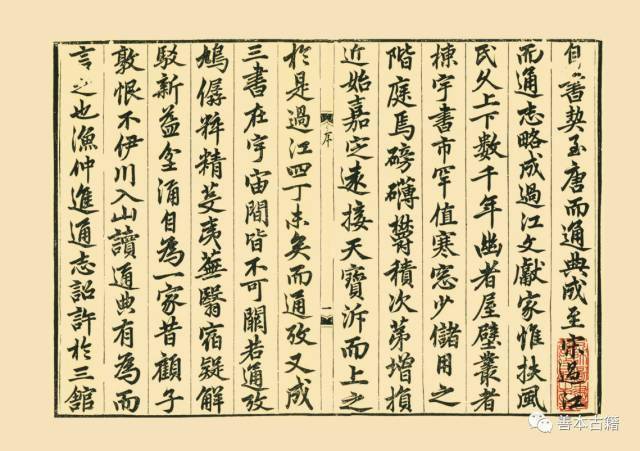 自書契至唐而通典成至宋過江
而通志略成過江文獻家惟扶風
氏父上下数千年幽者屋壁叢者
棟宇書市罕值寒窓少儲用之
階庭焉磅礴欝積次第增損
近始嘉定遠接天寳泝而上之
序
一
於是過江四丁未矣而通攷又成
三書在宇宙間皆不可闕若通攷
鳩僝粹精芟夷蕪翳宿疑解
駮新益坌涌自為一家昔顧子
敦恨不伊川入山讀通典有為而
言之也漁仲進通志詔許於三舘
善本古籍